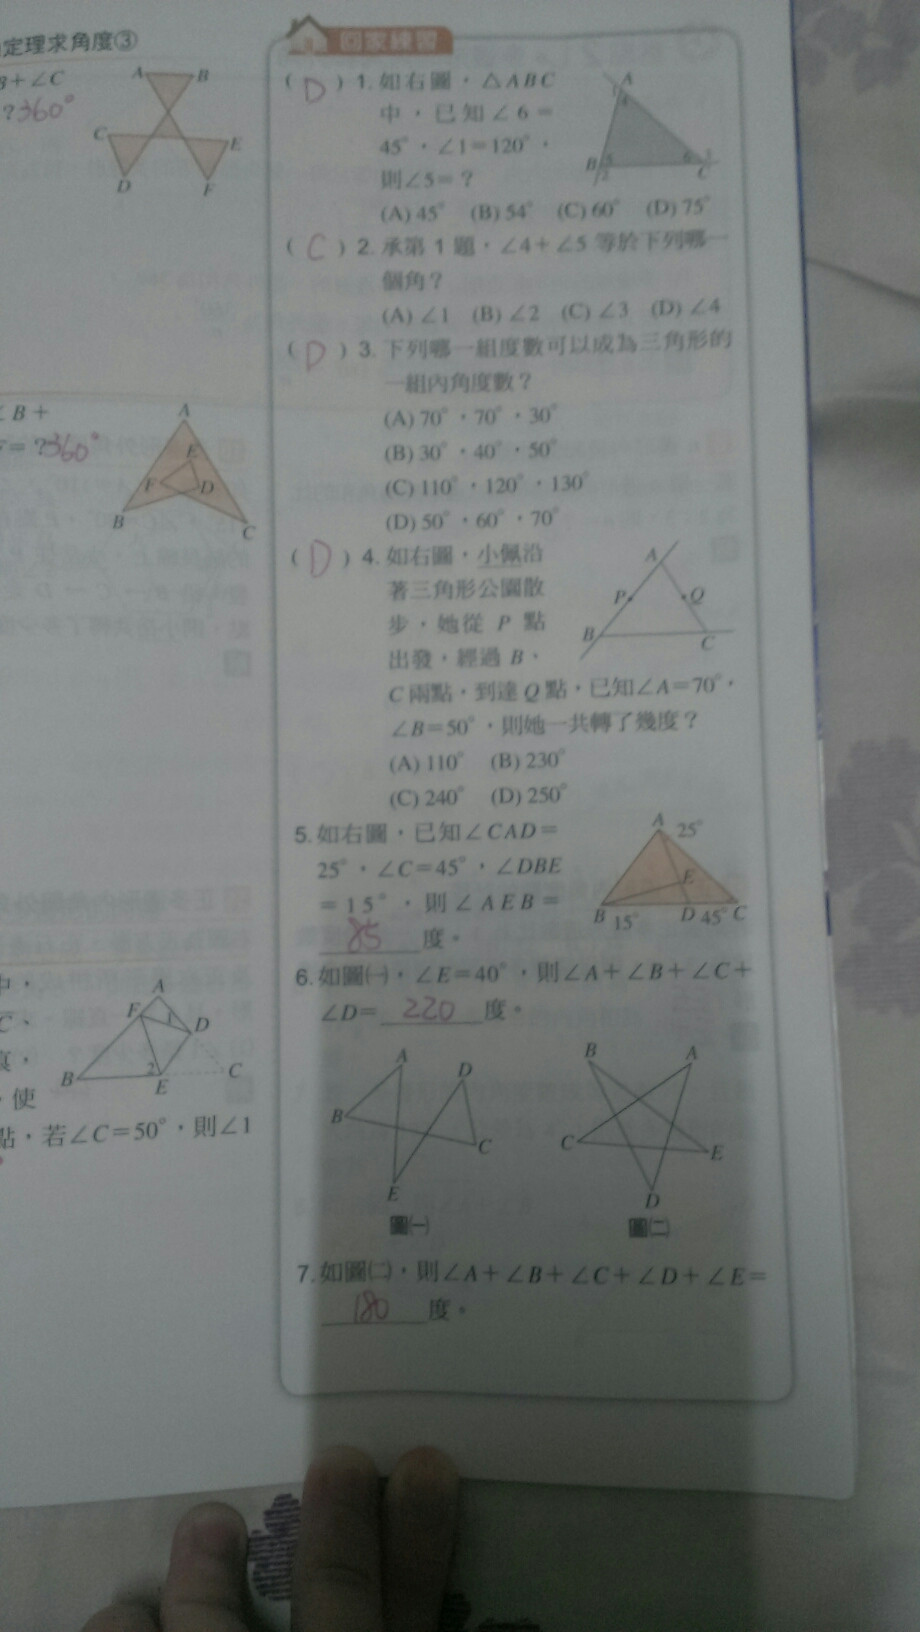 定理求角度③
B+∠C
?360°
A B
C E
D F
∠B+
=?360°
A
E
F D
B C
中,
A
F 1 D
B 2 E C
,使
點,若∠C=50°,則∠1
回家練習
(D) 1. 如右圖,△ABC
中,已知∠6=
45°,∠1=120°,
則∠5=?
(A) 45° (B) 54° (C) 60° (D) 75°
A
1
4
B 5 6 3
2 C
(C) 2. 承第 1 題,∠4+∠5 等於下列哪一
個角?
(A) ∠1 (B) ∠2 (C) ∠3 (D) ∠4
(D) 3. 下列哪一組度數可以成為三角形的
一組內角度數?
(A) 70°,70°,30°
(B) 30°,40°,50°
(C) 110°,120°,130°
(D) 50°,60°,70°
(D) 4. 如右圖,小佩沿
著三角形公園散
步,她從 P 點
出發,經過 B、
C 兩點,到達 Q 點,已知∠A=70°,
∠B=50°,則她一共轉了幾度?
(A) 110° (B) 230°
(C) 240° (D) 250°
A
P Q
B C
5. 如右圖,已知∠CAD=
25°,∠C=45°,∠DBE
=15°,則∠AEB=
85 度。
A 25°
E
B 15° D 45° C
6. 如圖㈠,∠E=40°,則∠A+∠B+∠C+
∠D= 220 度。
A D
B C
E
圖㈠
B A
C E
D
圖㈡
7. 如圖㈡,則∠A+∠B+∠C+∠D+∠E=
180 度。